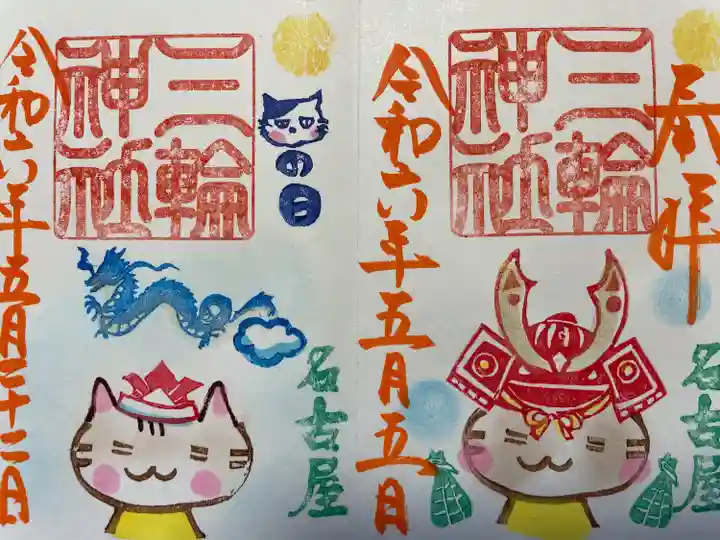 奉拝
三輪
神社
名古屋
令和六年五月五日
の日
三輪
神社
名古屋
令和六年五月二十二日